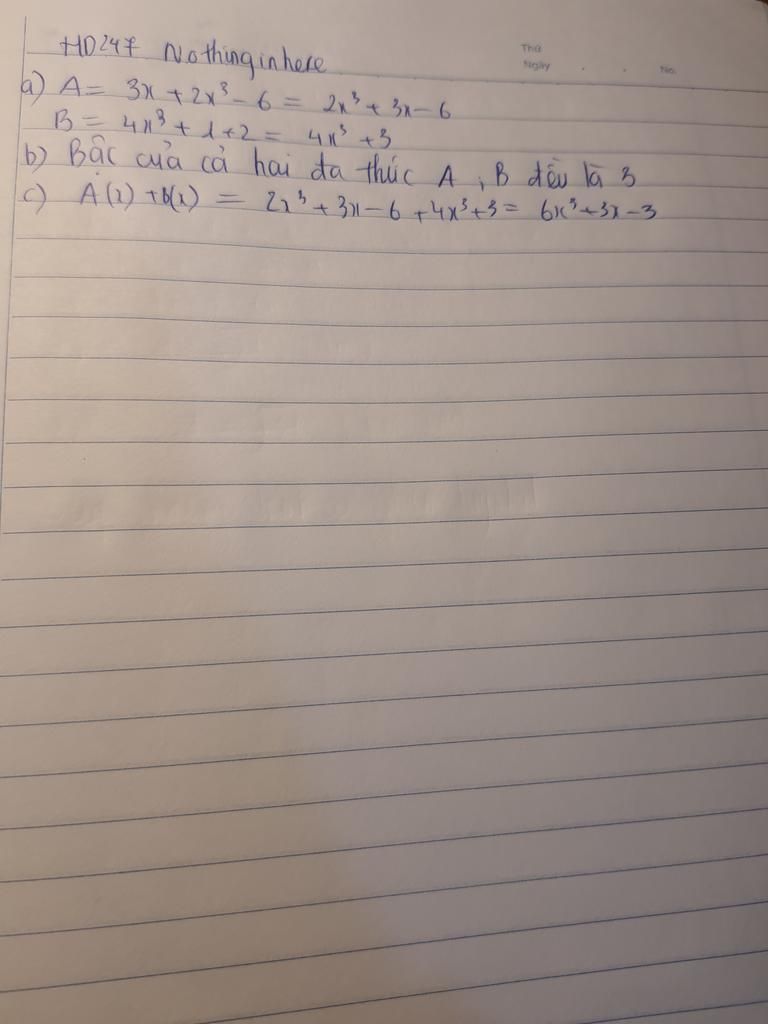 HD247 Nothinginhere
Thứ
Ngày . . No.
a) A = 3x + 2x³ - 6 = 2x³ + 3x - 6
B = 4x³ + 1 + 2 = 4x³ + 3
b) Bậc của cả hai đa thức A, B đều là 3
c) A(x) + B(x) = 2x³ + 3x - 6 + 4x³ + 3 = 6x³ + 3x - 3